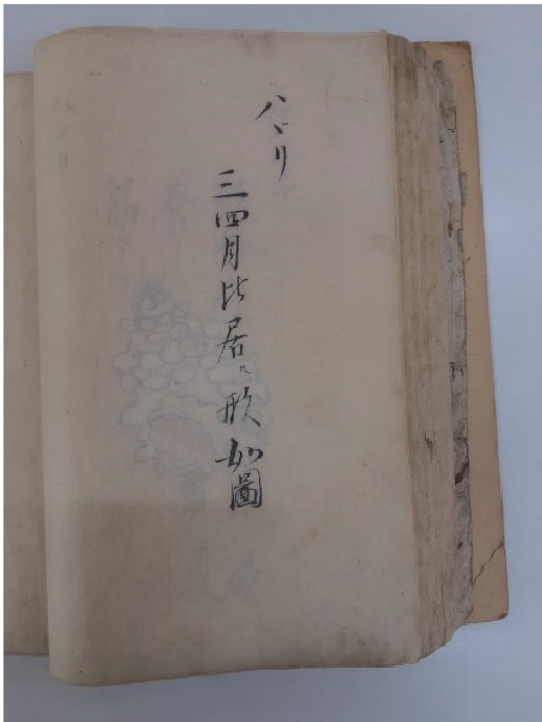 ハヾリ
三四月比居ル形如圖